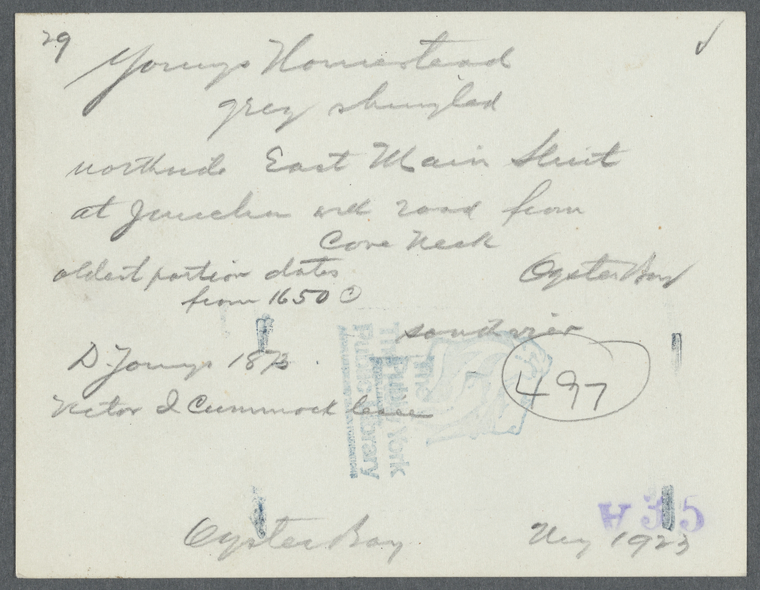 29
Youngs Homestead
grey shingled
northside East Main Street
at Junction with road from
Cove Neck
oldest portion dates
from 1650 ©
Oyster Bay
south view
D. Youngs 1873
497
Victor I Cummock lessee
The New York
Public Library
Oyster Bay
1923